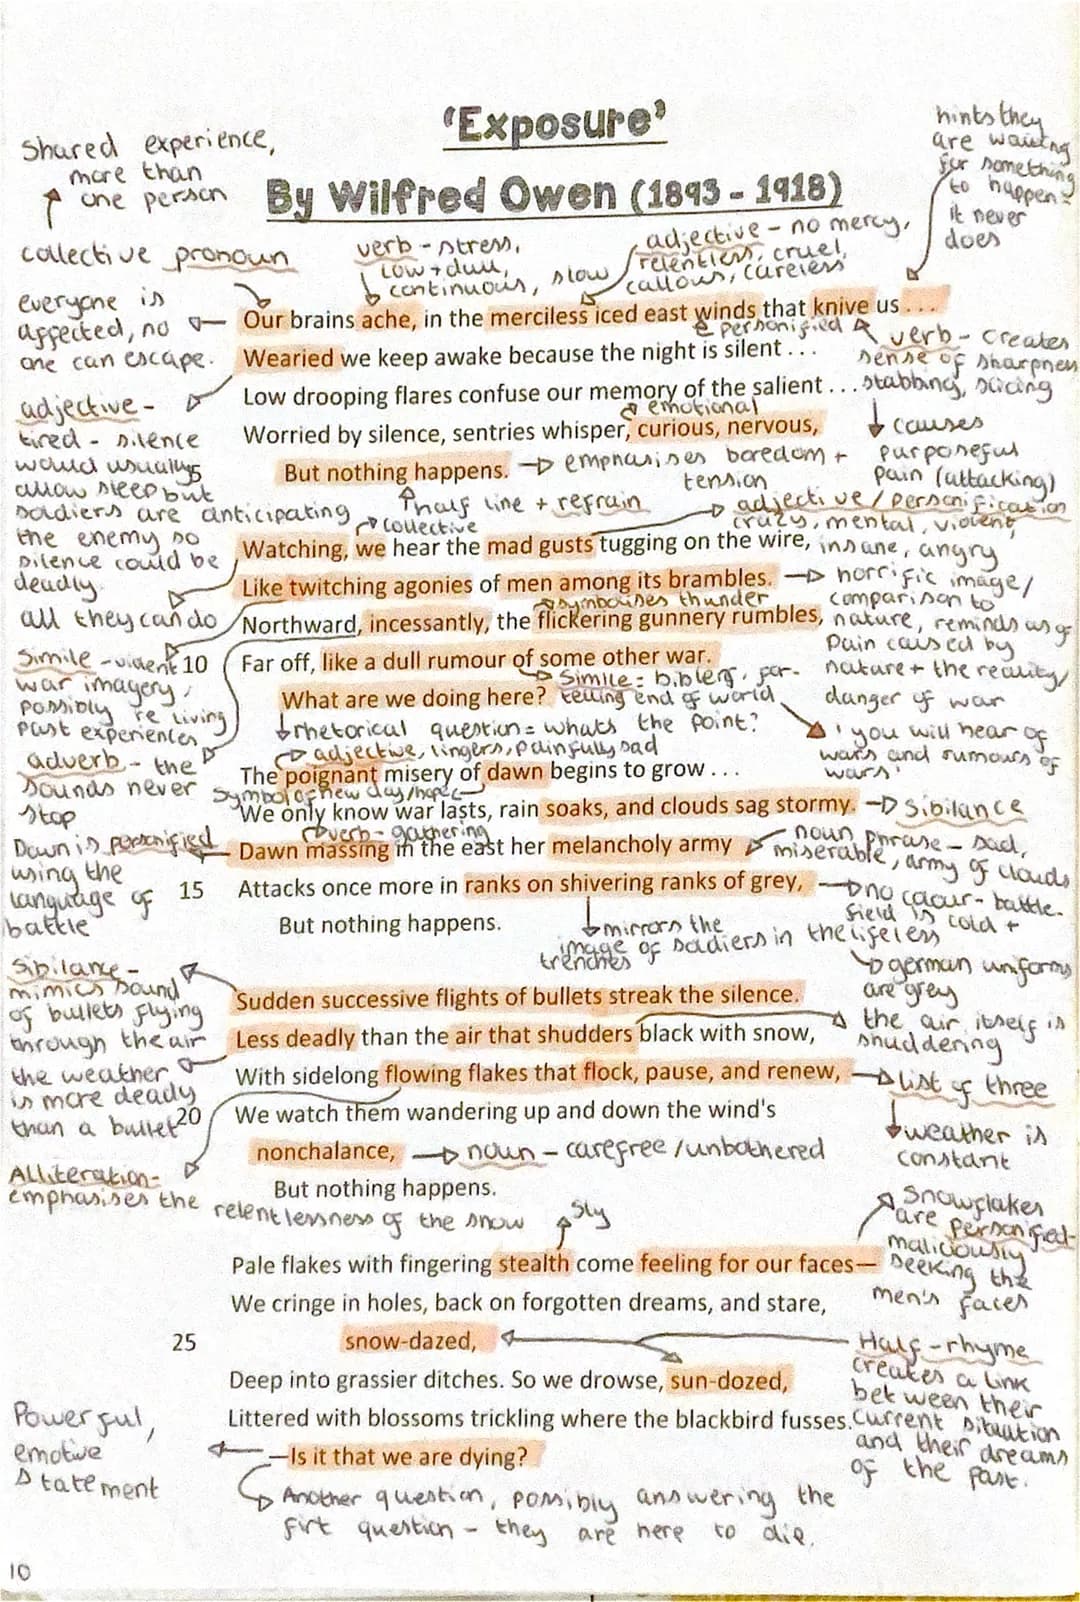 'Exposure'
By Wilfred Owen (1893 - 1918)
Shared experience,
more than
one person
collective pronoun
everyone is
affected, no
one can escape.
verb - stress,
low + dull,
continuous, slow
adjective - no mercy,
relentless, cruel,
callous, careless
hints they
are waiting
for something
to happen -
it never
does
Our brains ache, in the merciless iced east winds that knive us . . .
personified
verb - creates
sense of sharpness
stabbing, slicing
causes
purposeful
pain (attacking)
Wearied we keep awake because the night is silent . . .
Low drooping flares confuse our memory of the salient . . .
emotional
Worried by silence, sentries whisper, curious, nervous,
5
But nothing happens.
emphasises boredom +
tension
half line + refrain
adjective -
tired - silence
would usually
allow sleep but
soldiers are anticipating
the enemy so
silence could be
deadly.
collective
adjective / personification
crazy, mental, violent,
insane, angry
Watching, we hear the mad gusts tugging on the wire,
all they can do
Like twitching agonies of men among its brambles.
horrific image/
comparison to
nature, reminds us of
pain caused by
nature + the reality/
danger of war
symbolises thunder
Northward, incessantly, the flickering gunnery rumbles,
Simile - violent
war imagery,
possibly re living
past experiences
10
Far off, like a dull rumour of some other war.
Simile = biblery, for-
telling end of world
'you will hear of
wars and rumours of
wars'
What are we doing here?
rhetorical question = whats the point?
adverb - the
sounds never
stop
adjective, lingers, painfully sad
The poignant misery of dawn begins to grow . . .
Symbol of new day/hope
We only know war lasts, rain soaks, and clouds sag stormy.
Sibilance
verb - gathering
Dawn is personified
using the
language of
battle
Dawn massing in the east her melancholy army
noun phrase - sad,
miserable, army of clouds
15
Attacks once more in ranks on shivering ranks of grey,
no colour - battle-
field is cold +
lifeless
german uniforms
are grey
But nothing happens.
mirrors the
image of soldiers in the
trenches
Sibilance -
mimics sound
of bullets flying
through the air
Sudden successive flights of bullets streak the silence.
Less deadly than the air that shudders black with snow,
the air itself is
shuddering
the weather
is more deadly
than a bullet
With sidelong flowing flakes that flock, pause, and renew,
list of three
weather is
constant
20
We watch them wandering up and down the wind's
nonchalance,
noun - carefree /unbothered
But nothing happens.
Alliteration -
emphasises the
relentlessness of the snow
sly
Snowflakes
are personified -
maliciously
seeking the
men's faces
Pale flakes with fingering stealth come feeling for our faces—
We cringe in holes, back on forgotten dreams, and stare,
25
snow-dazed,
Half-rhyme
creates a link
between their
current situation
and their dreams
of the past.
Deep into grassier ditches. So we drowse, sun-dozed,
Littered with blossoms trickling where the blackbird fusses.
Powerful,
emotive
statement
—Is it that we are dying?
Another question, possibly answering the
firt question - they are here to die.
10